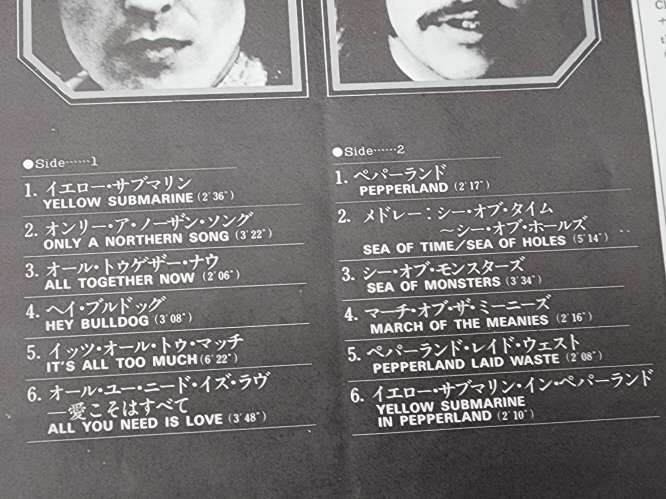 ●Side……1
1. イエロー・サブマリン
YELLOW SUBMARINE (2'36")
2. オンリー・ア・ノーザン・ソング
ONLY A NORTHERN SONG (3'22")
3. オール・トゥゲザー・ナウ
ALL TOGETHER NOW (2'06")
4. ヘイ・ブルドッグ
HEY BULLDOG (3'08")
5. イッツ・オール・トゥ・マッチ
IT'S ALL TOO MUCH (6'22")
6. オール・ユー・ニード・イズ・ラヴ
—愛こそはすべて
ALL YOU NEED IS LOVE (3'48")
●Side……2
1. ペパーランド
PEPPERLAND (2'17")
2. メドレー：シー・オブ・タイム
～シー・オブ・ホールズ
SEA OF TIME/SEA OF HOLES (5'14")
3. シー・オブ・モンスターズ
SEA OF MONSTERS (3'34")
4. マーチ・オブ・ザ・ミーニーズ
MARCH OF THE MEANIES (2'16")
5. ペパーランド・レイド・ウェスト
PEPPERLAND LAID WASTE (2'08")
6. イエロー・サブマリン・イン・ペパーランド
YELLOW SUBMARINE
IN PEPPERLAND (2'10")